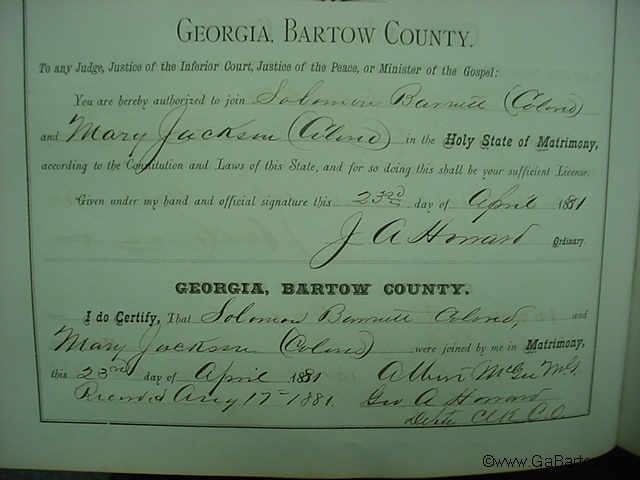 GEORGIA, BARTOW COUNTY.
To any Judge, Justice of the Inferior Court, Justice of the Peace, or Minister of the Gospel:
You are hereby authorized to join Solomon Barnett (Colored)
and Mary Jackson (Colored) in the Holy State of Matrimony,
according to the Constitution and Laws of this State, and for so doing this shall be your sufficient License.
Given under my hand and official signature this 23rd day of April 1881
J A Howard Ordinary.
GEORGIA, BARTOW COUNTY.
I do Certify, That Solomon Barnett Colored, and
Mary Jackson (Colored) were joined by me in Matrimony,
this 23rd day of April 1881 McGee M.G.
Recorded Aug 17 1881. Geo A Howard
Clk C.O.
©www.GaBartow